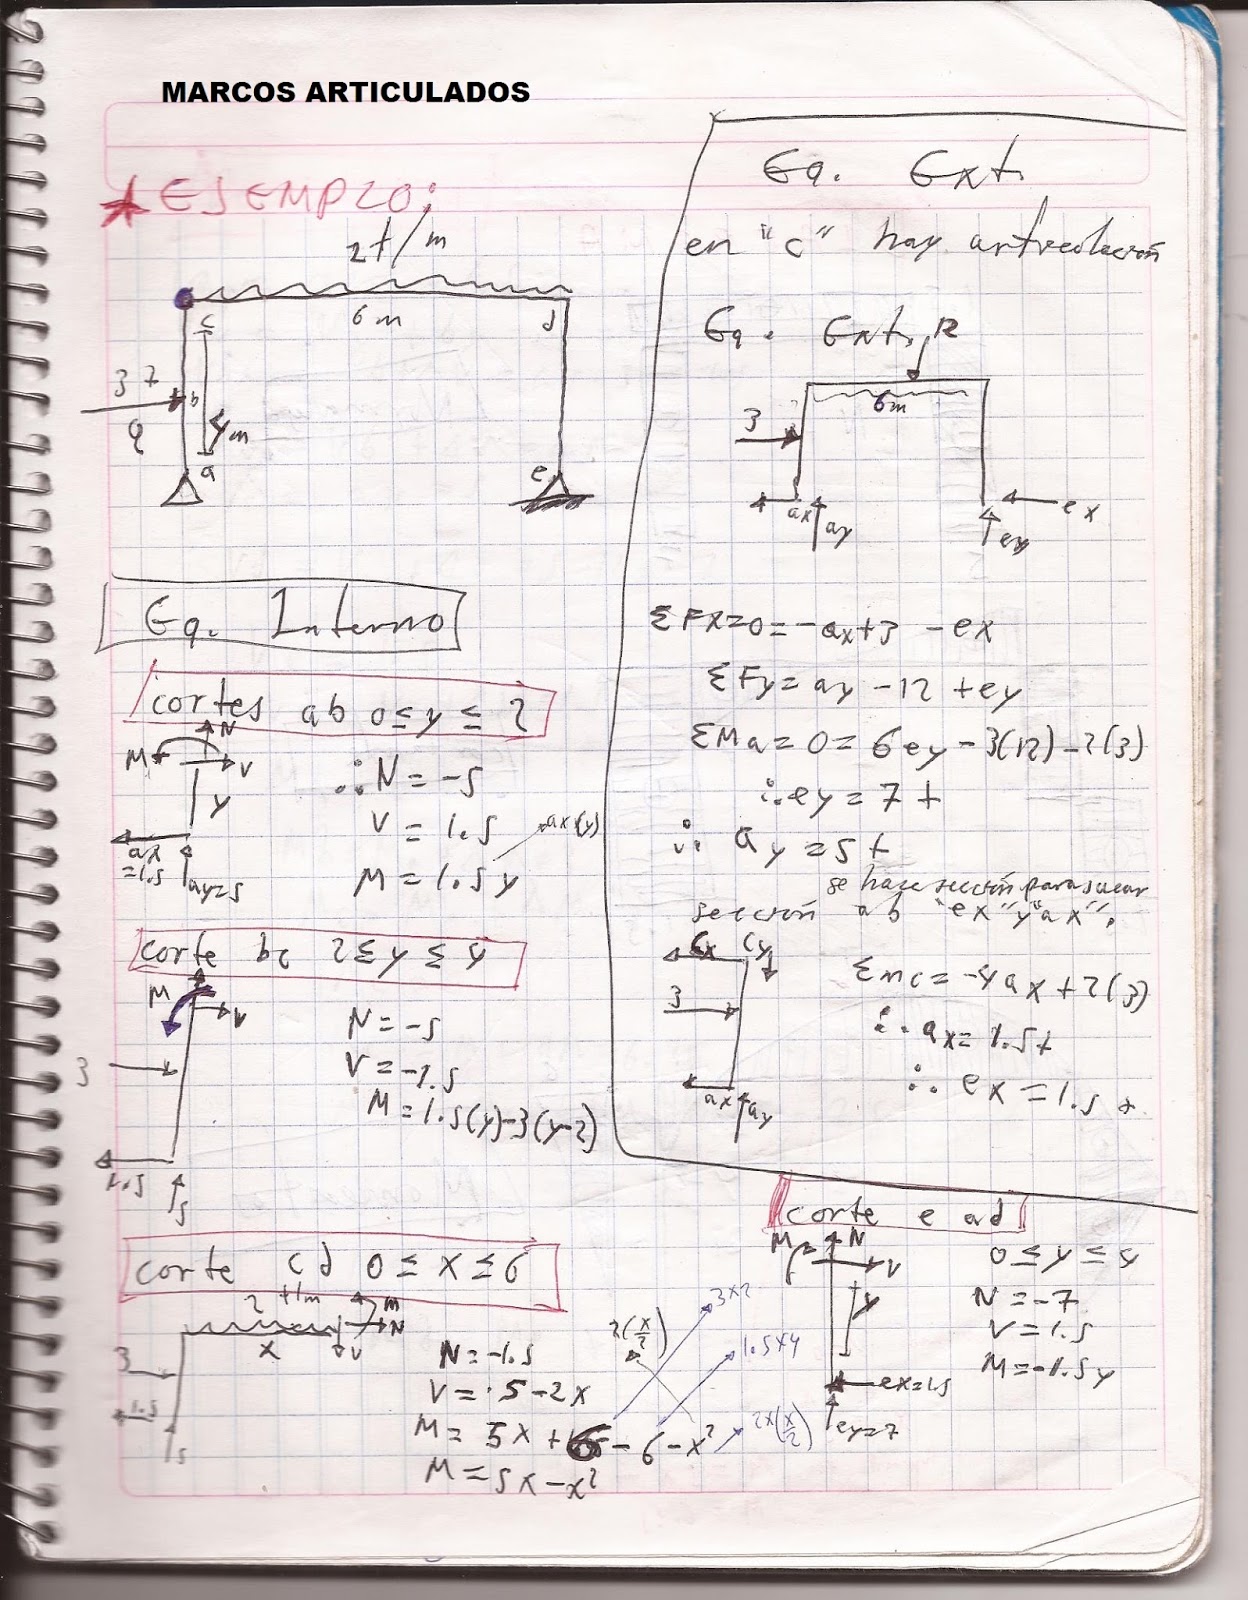 MARCOS ARTICULADOS
EJEMPLO:
2t/m
c
6m
d
3 T
b
4m
a
e
Eq. Ext.
en "c" hay articulación
Eq. Ext.
12
6m
3
ax
ay
ex
ey
ΣFx=0=-ax+3-ex
ΣFy=ay-12+ey
ΣMa=0=6ey-3(12)-2(3)
∴ey=7t
∴ay=5t
se hace sección para sacar
sección ab "ex" y "ax".
Cx
Cy
3
ax
ay
Σmc=-4ax+2(3)
∴ax=1.5t
∴ex=1.5t
Eq. Interno
cortes ab 0≤y≤2
N
M
V
y
ax
=1.5
ay=5
∴N=-5
V=1.5
ax(y)
M=1.5y
corte bc 2≤y≤4
M
V
3
1.5
5
N=-5
V=-1.5
M=1.5(y)-3(y-2)
corte cd 0≤x≤6
2t/m
m
N
V
x
3
1.5
5
N=-1.5
V=5-2x
M=5x+6-6-x²
M=5x-x²
2(x/2)
3x2
1.5x4
2x(x/2)
corte e ad
0≤y≤4
M
N
V
y
ex=1.5
ey=7
N=-7
V=1.5
M=-1.5y